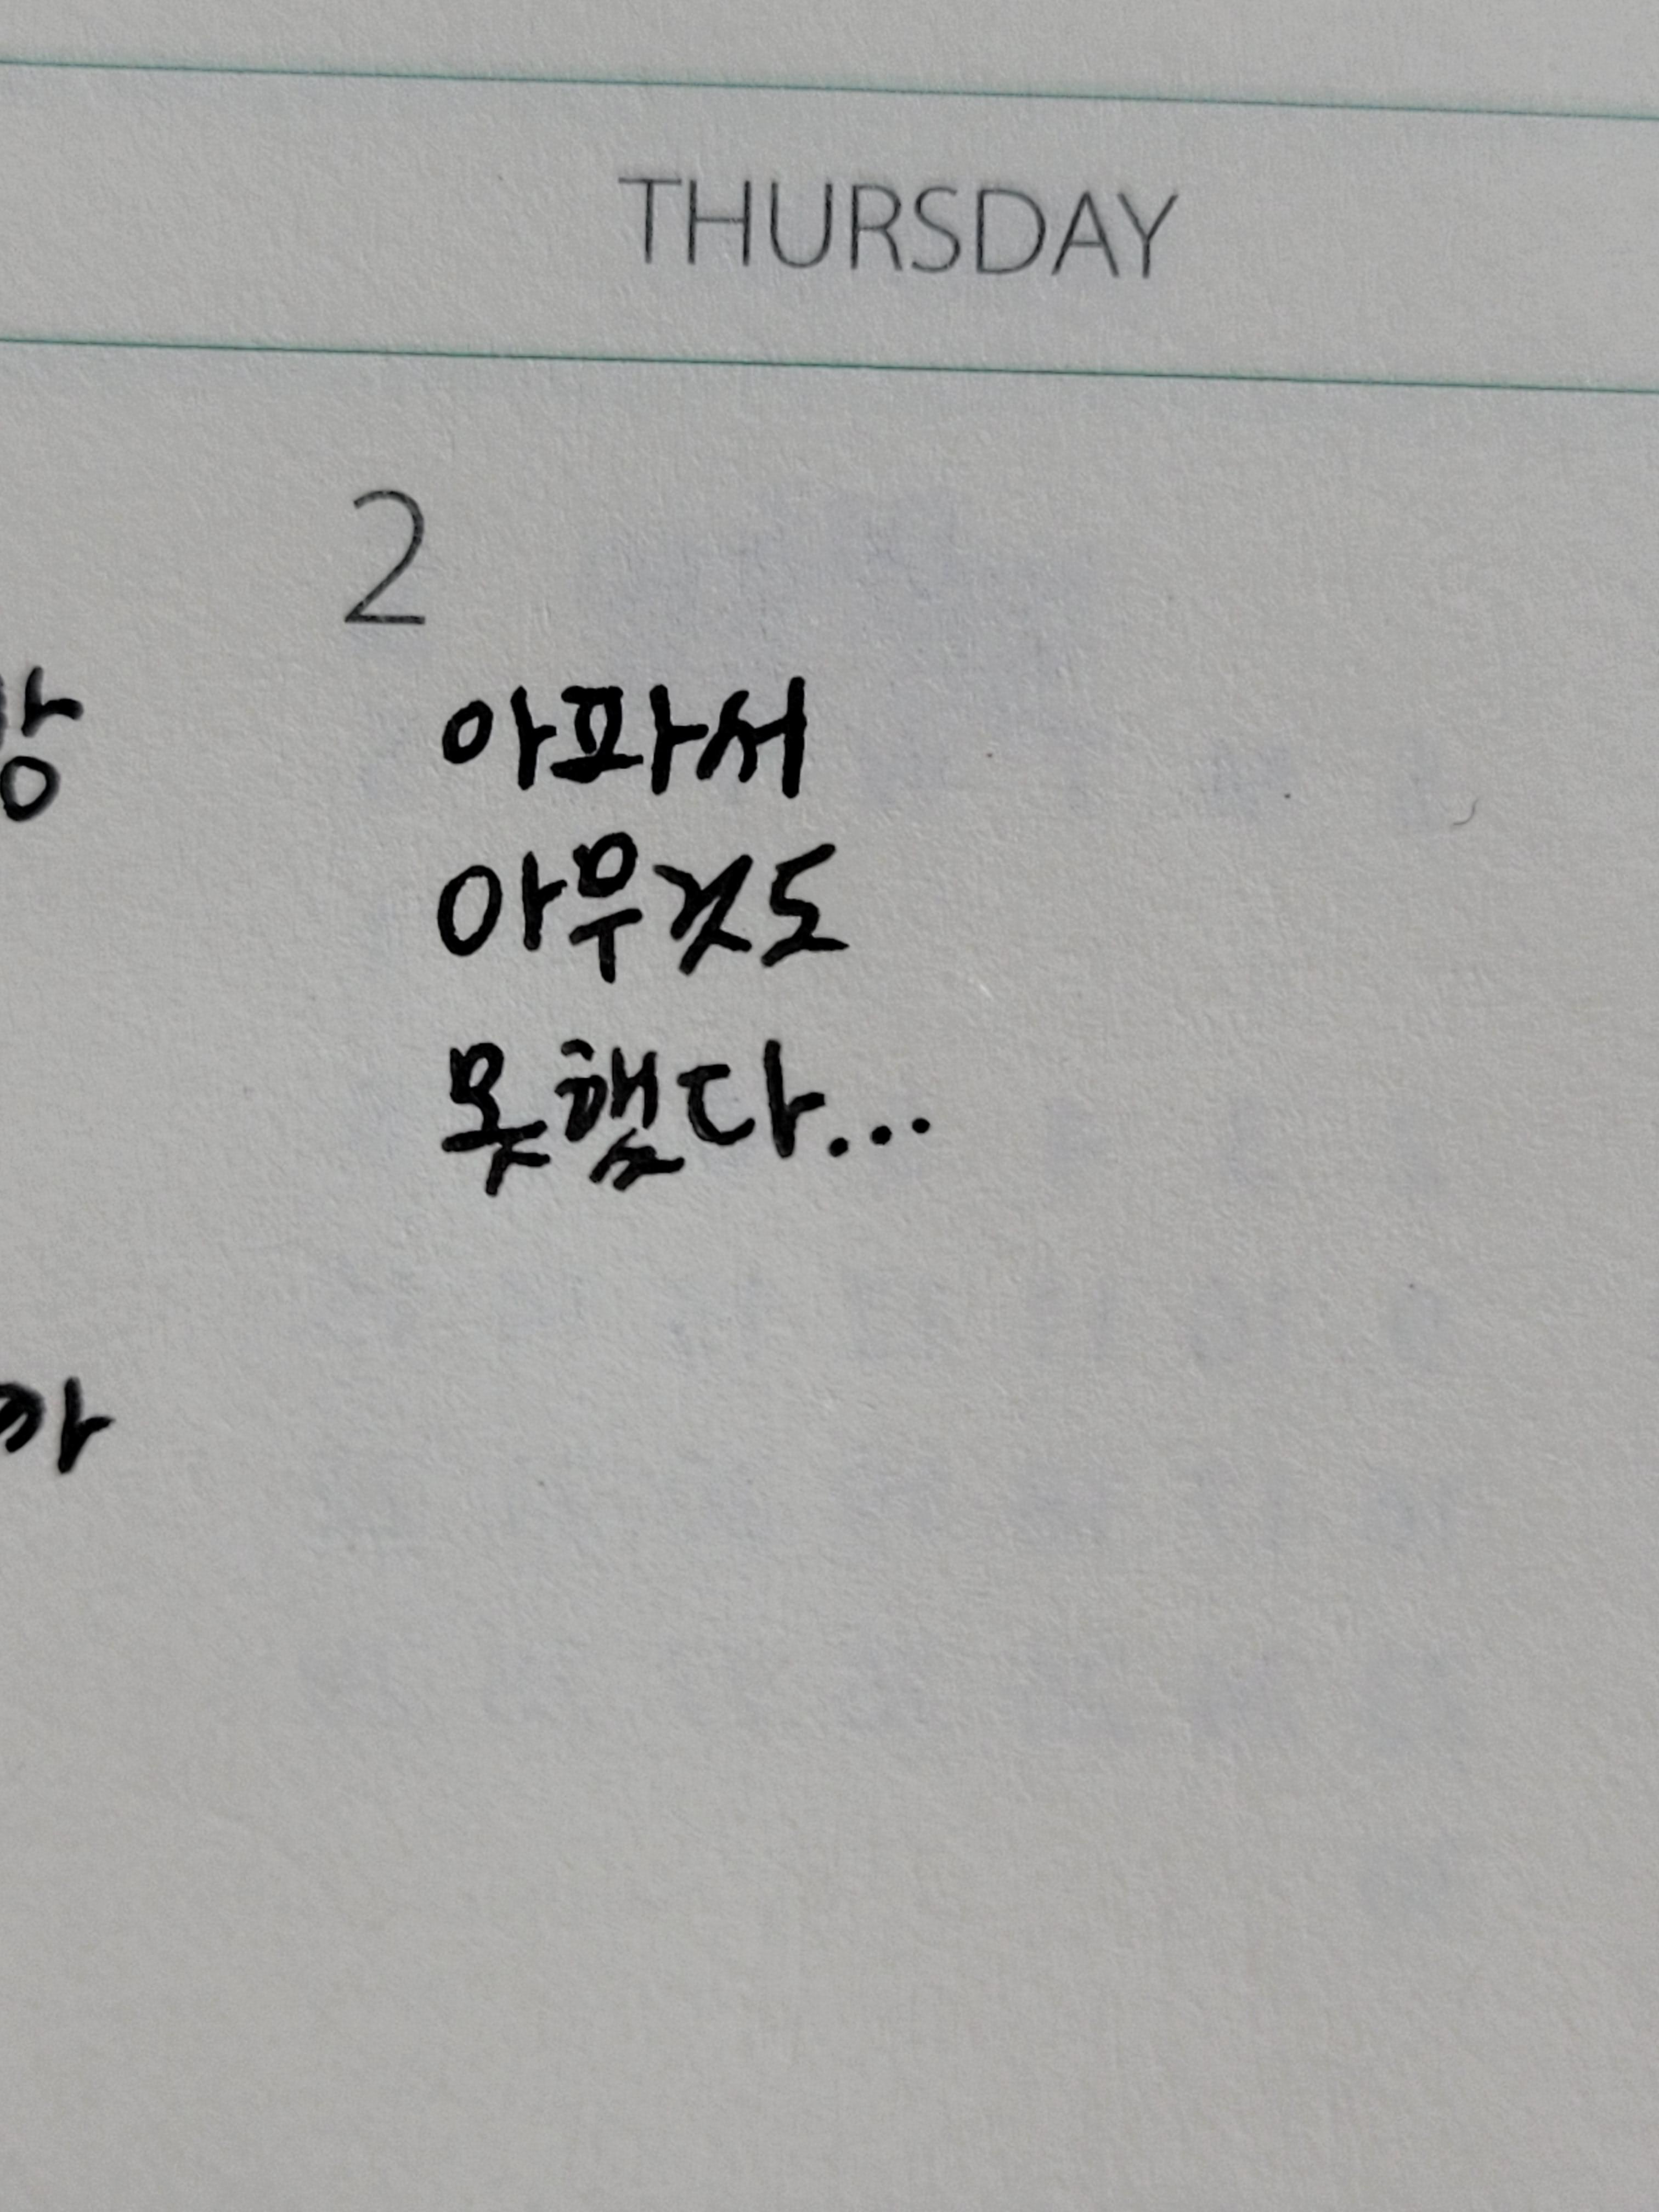 THURSDAY
2
아파서
아무것도
못했다...